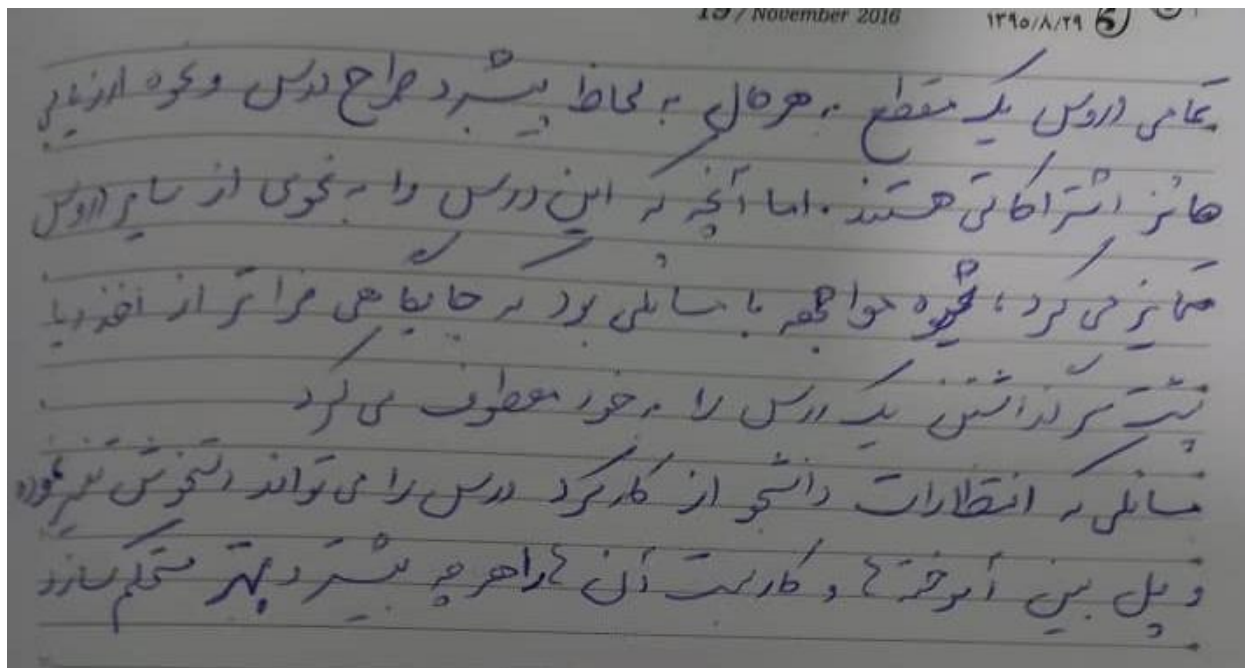 19 / November 2016 ۱۳۹۵/۸/۲۹
تمامی دروس یک مقطع به هرحال به لحاظ پیشبرد طراح درس و نحوه ارزیابی
حائز اشتراکاتی هستند. اما آنچه که این درس را به نحوی از سایر دروس
متمایز می کرد، شیوه مواجهه با مسائلی بود که جایگاهی فراتر از اخذ و یا
پشت سر گذاشتن یک درس را به خود معطوف می کرد
مسائلی که انتظارات دانشجو از کارکرد درس را می تواند دستخوش تغییر نموده
و پل بین آموخته ها و کاربست آن ها را هر چه بیشتر و بهتر مستحکم سازد